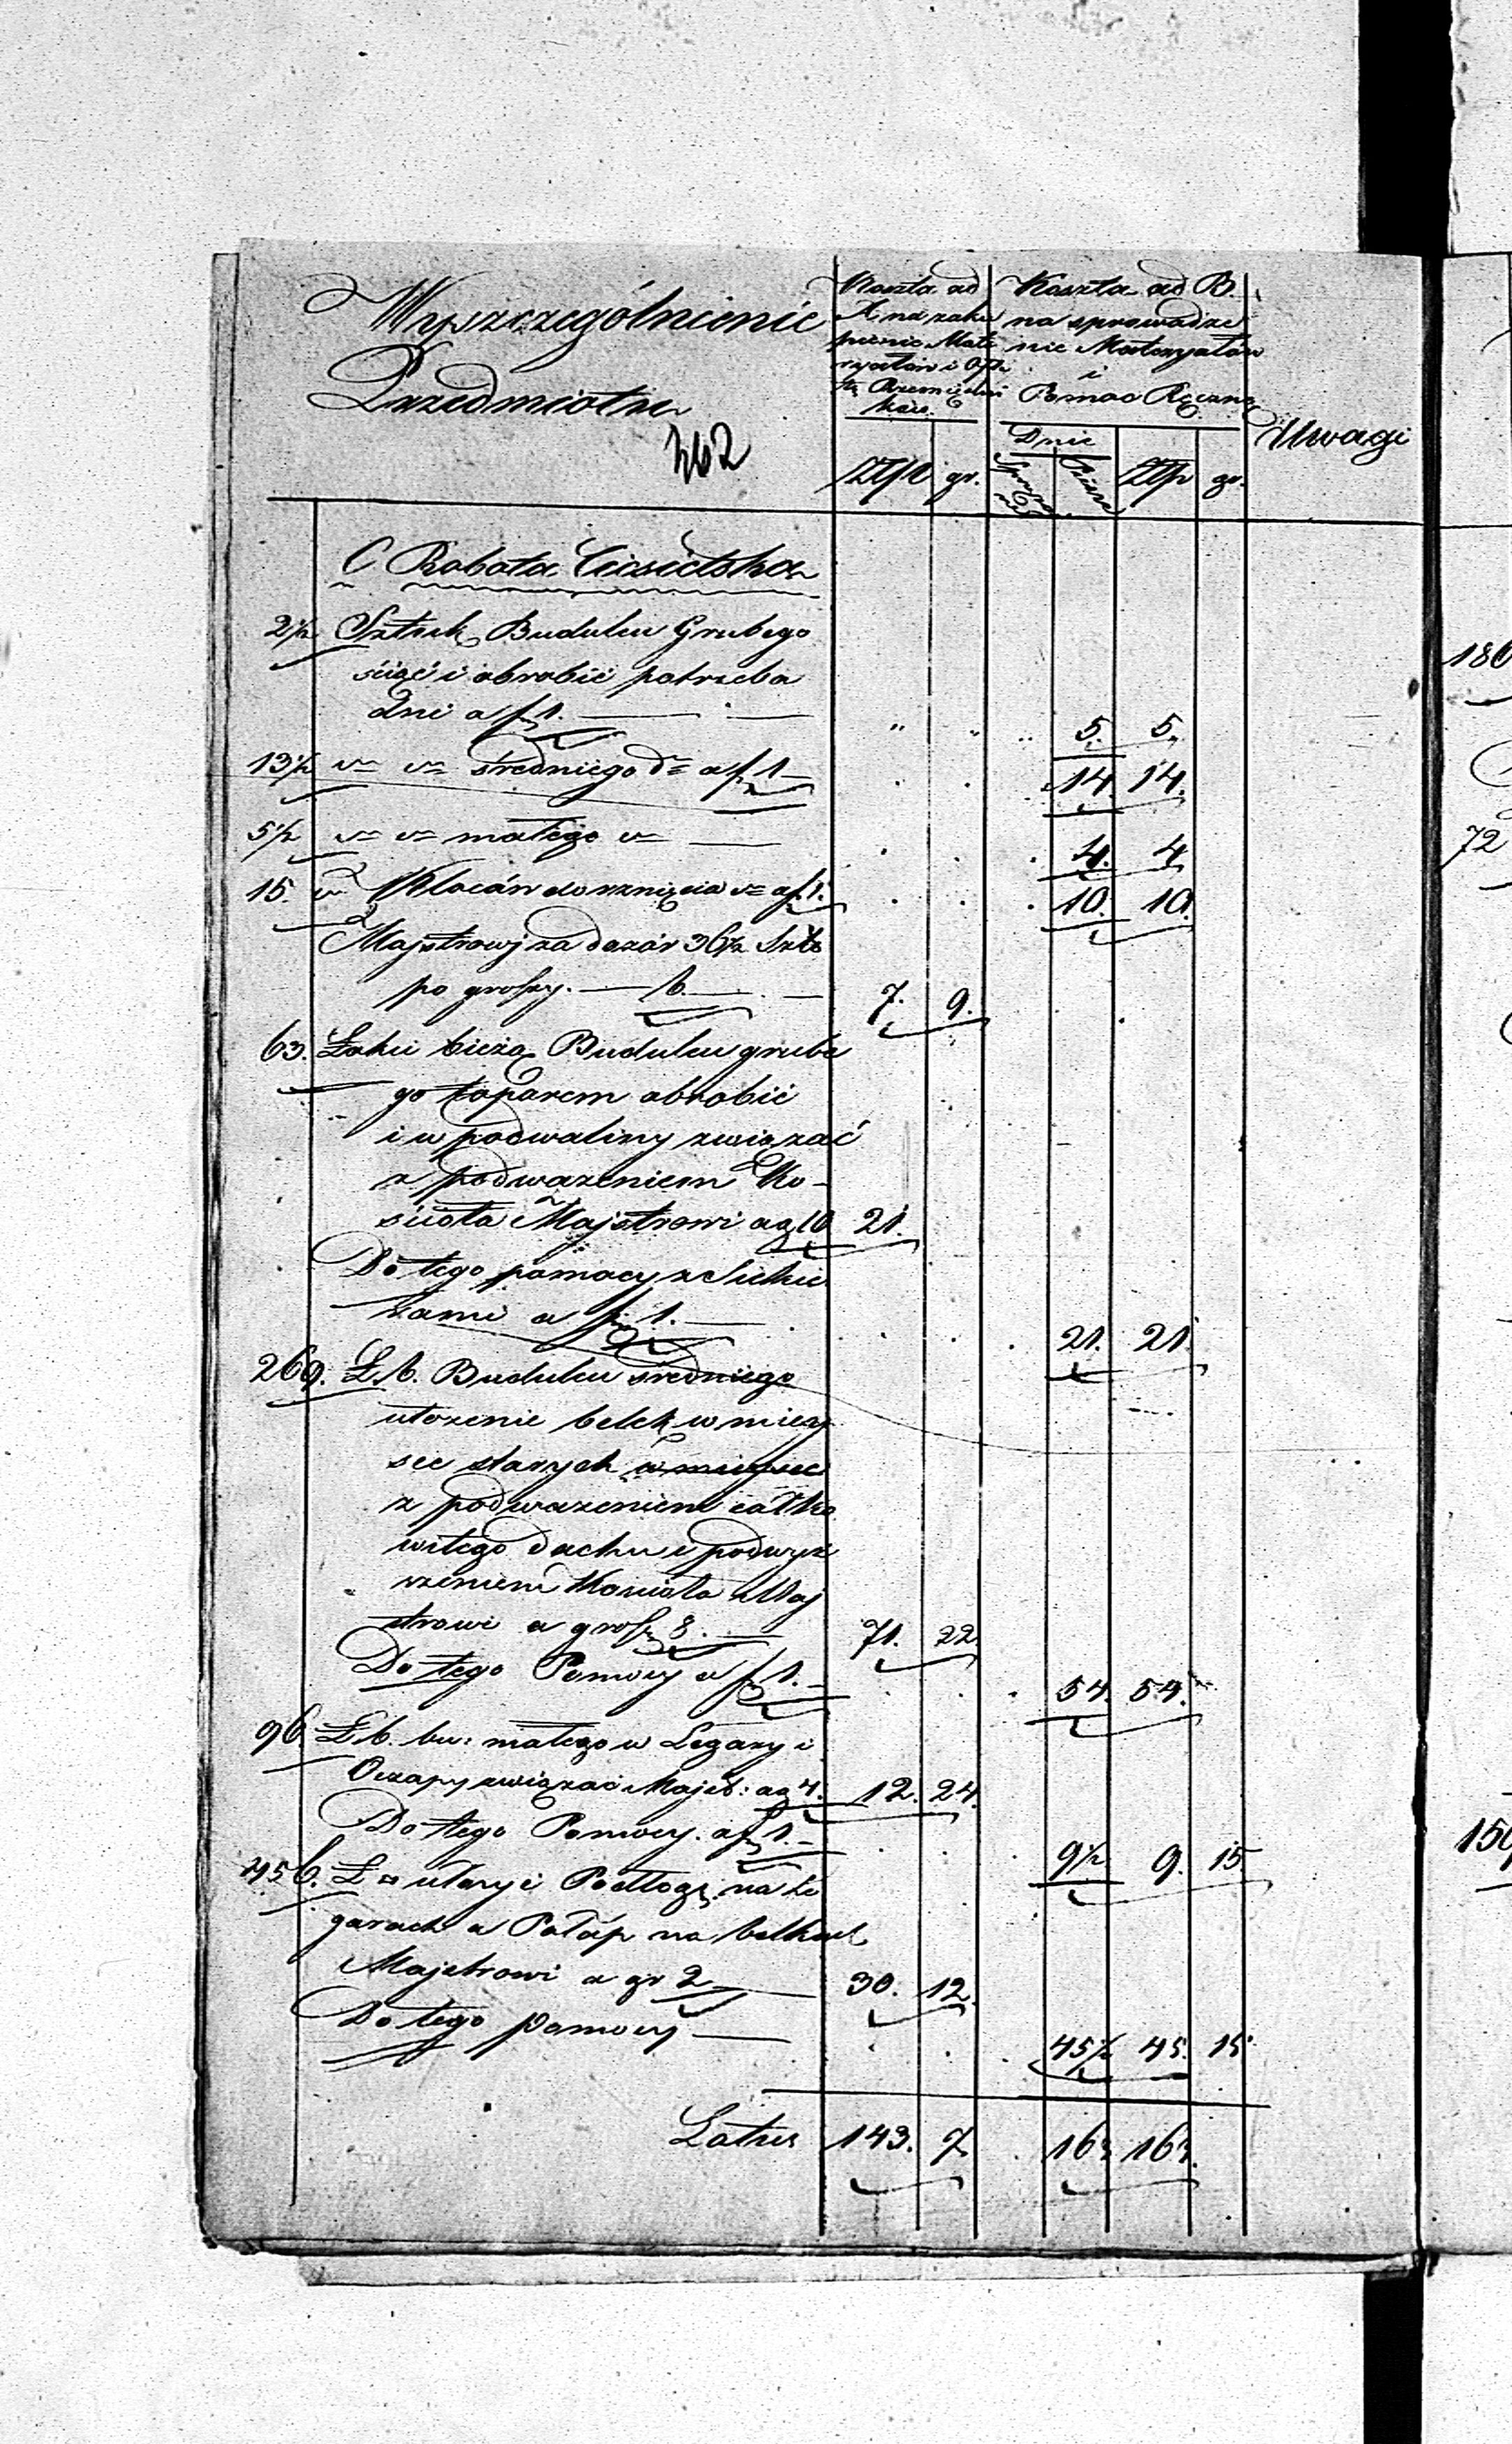 Wyszczególnienie
Przedmiotu
362
Koszta ad
A na zaku
pienie Mate
ryałów i Opła
tę Rzemieślni
ków.
Złp gr.
Koszta ad B.
na sprowadze
nie Materyałów
i
Pomoc Ręczną
Dnie
Sprzęż Piesze Złp gr.
Uwagi
C Robota Ciesielska
2½ Sztuk Budulcu Grubego
ściąć i obrobić potrzeba
dni a f 1. — " " " 5. 5.
13½ średniego do a f 1 — 14. 14.
5½ małego — 4. 4.
15. Kloców do rznięcia a f. 1. 10. 10.
Majstrowj za dozór 36½ Szt
po groszy. — 6. — 7. 9.
63. Łokci bieżą Budulcu grube
go toporem obrobić
i w podwaliny związać
z podważeniem Ko-
ścioła Majstrowi a g 10 21.
Do tego pomocy z Siekie
rami a f 1. — 21. 21
269. Ł. b. Budulcu średniego
ułożenie belek w miey
sce starych w mieysce
z podważeniem całko
witego dachu i podwyż
szeniem Kościoła Maj
strowi a grosz 8. — 71. 22.
Do tego Pomocy a f 1. — 54. 54.
96. Ł b. bu: małego w Legary i
Oczapy związać Majst: a g 4. 12. 24.
Do tego Pomocy. a f 1. — 9½ 9. 15
456. Ł utary i Podłogę na Le
garach a Pałap na belkach
Majstrowi a gr 2 — 30. 12.
Do tego pomocy — 45½ 45. 15
Latus 143. 7 163 163.
180
72
150